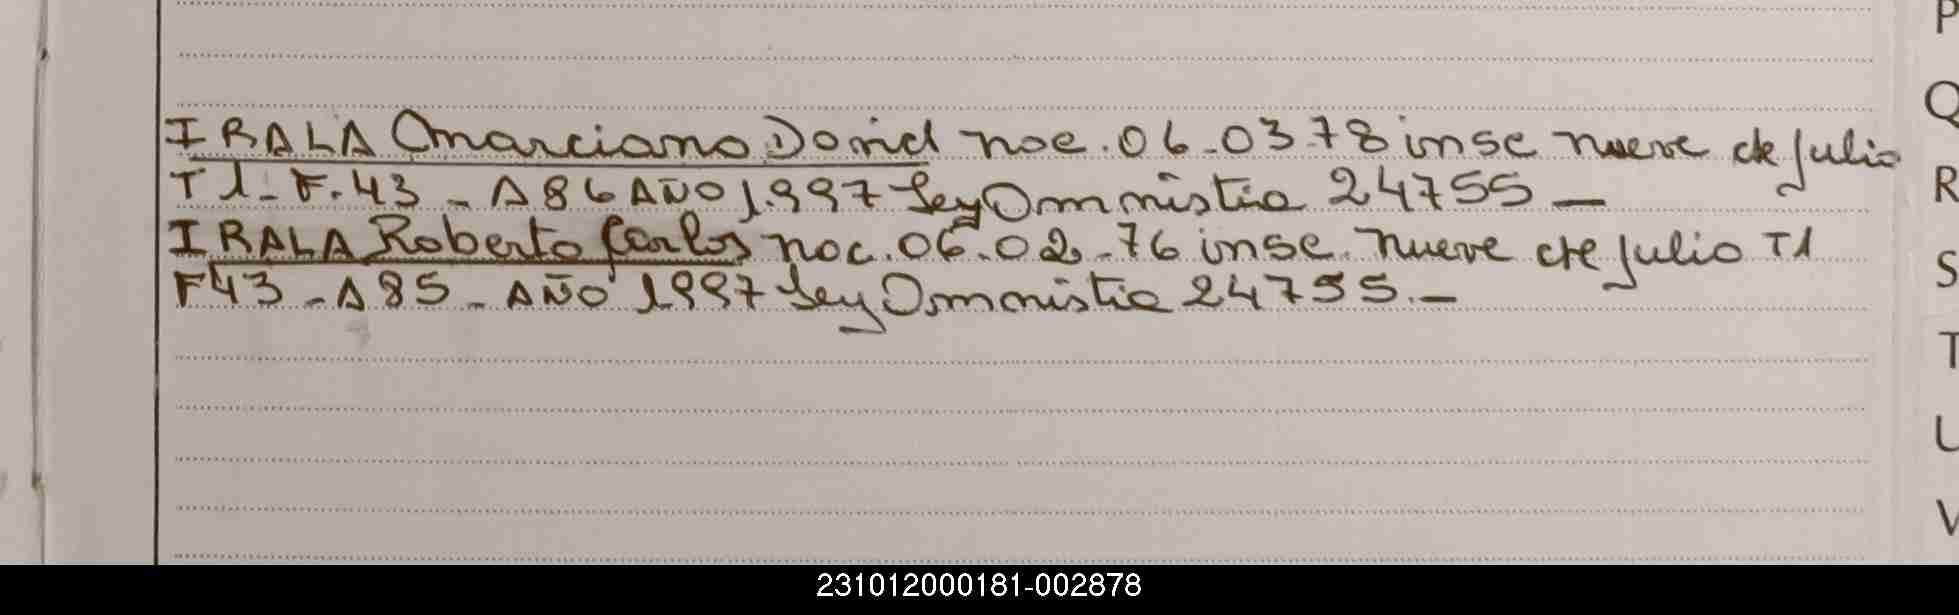 IRALA Marciano David nac. 06-03-78 insc nueve de Julio
T1-F.43 - A86 AÑO 1.997 Ley Amnistia 24755 -
IRALA Roberto Carlos nac. 06.02.76 insc. nueve de Julio T1
F43-A85- AÑO 1997 Ley Amnistia 24755.-
P
Q
R
S
T
U
V
231012000181-002878